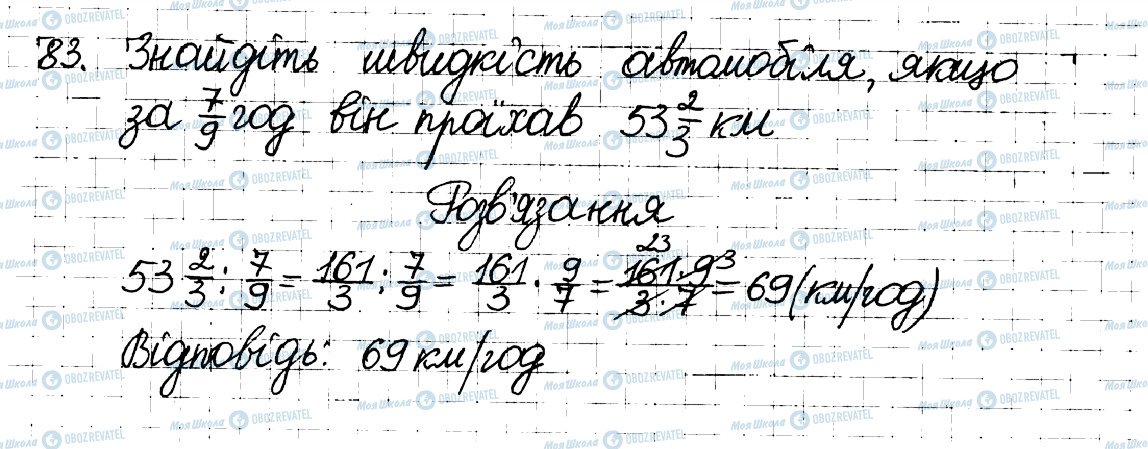 83. Знайдіть швидкість автомобіля, якщо
за 7/9 год він проїхав 53 2/3 км
Розв'язання
53 2/3 : 7/9 = 161/3 : 7/9 = 161/3 · 9/7 = 161 · 9/3 · 7 = 69 (км/год)
23 3
Відповідь: 69 км/год
МояШкола OBOZREVATEL